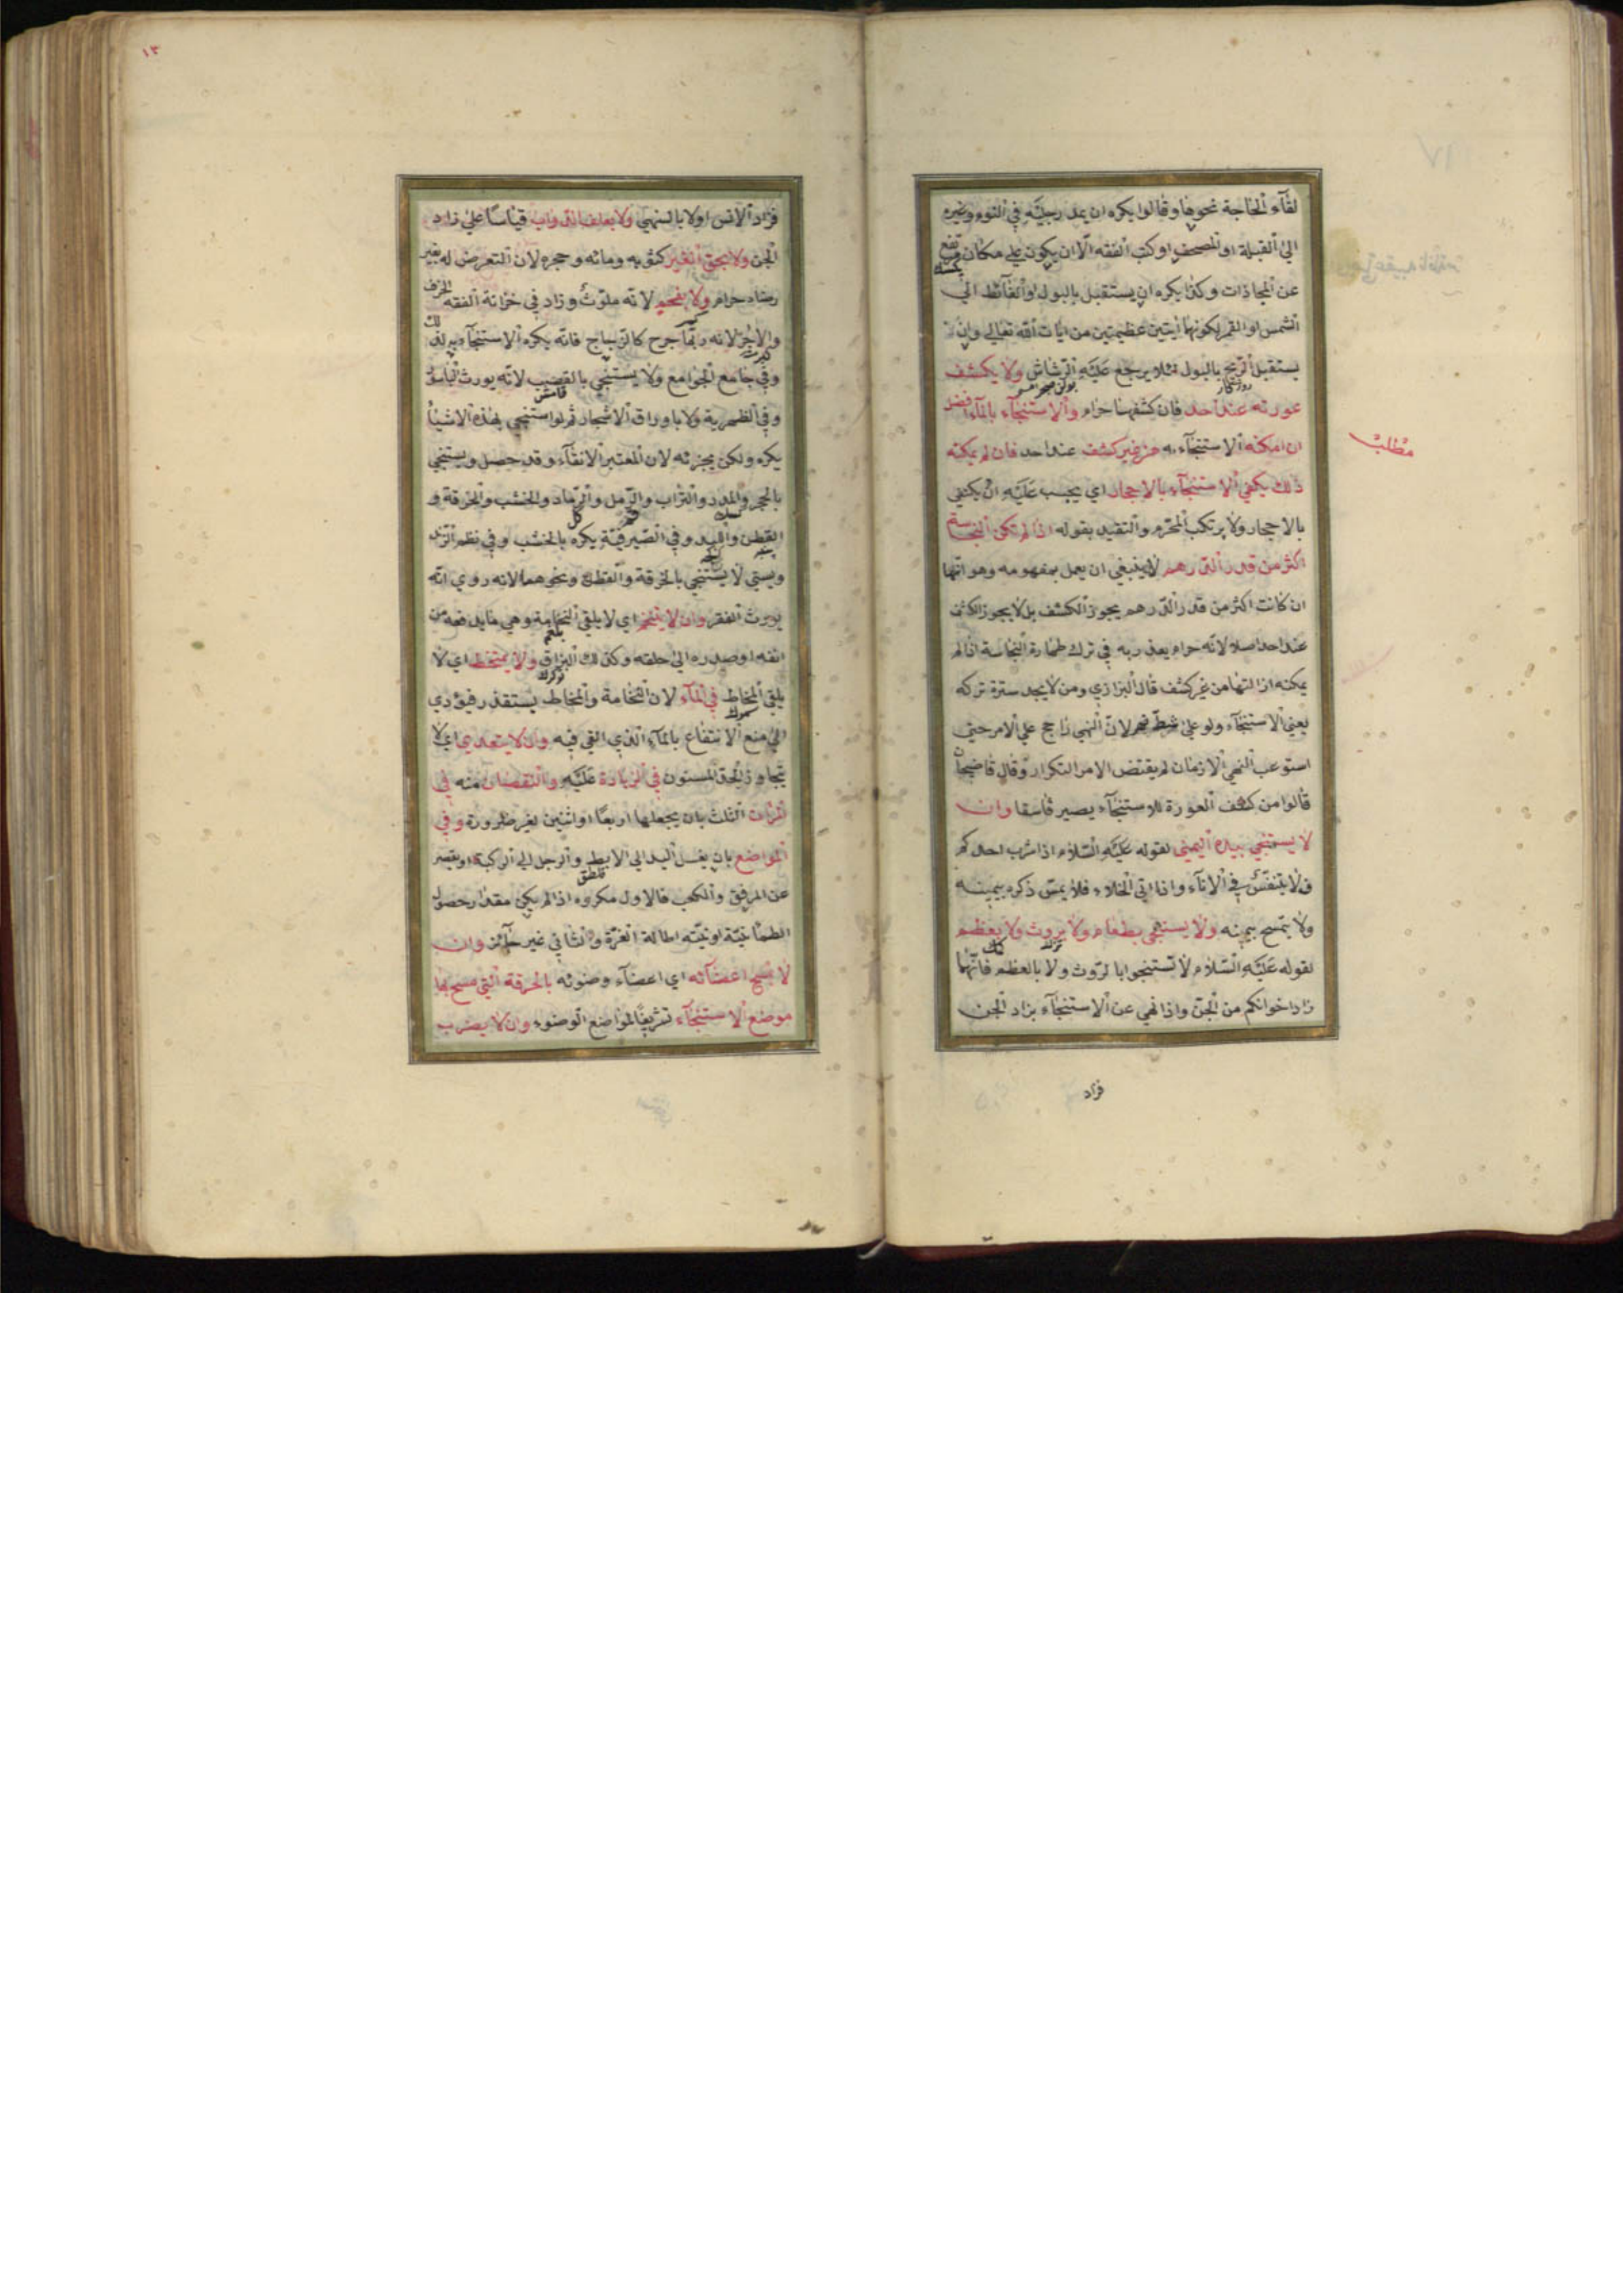 لقآء الحاجة نحوها وقالوا يكره ان يمد رجليه في النوم وغيره
الى القبلة او المصحف او كتب الفقه الّا ان يكون على مكان مرتفع
عن المحاذات وكذا يكره ان يستقبل بالبول والغآئط الى
الشمس او القمر لكونهما ايتين عظيمتين من ايات الله تعالى وان
يستقبل الريح بالبول مثلا يرجع عليه الرشاش ولا يكشف
عورته عند احد فان كشفها حرام والاستنجآء بالمآء افضل
ان امكنه الاستنجآء به من غير كشف عند احد فان لم يمكنه
مطلب
ذلك يكفي الاستنجآء بالاحجار اي يجب عليه ان يكتفي
بالاحجار ولا يرتكب المحرم والتقييد بقوله اذا لم تكن النجاسة
اكثر من قدر الدرهم لا ينبغي ان يعمل بمفهومه وهو انها
ان كانت اكثر من قدر الدرهم يجوز الكشف بل لا يجوز الكشف
عند احد اصلا لانه حرام يعذر به في ترك طهارة النجاسة اذا لم
يمكنه ازالتها من غير كشف قال البزازي ومن لا يجد سترة تركه
يعني الاستنجآء ولو على شط نهر لان النهي راجح على الامر حتى
استوعب النهي الازمان لم يقتض الامر التكرار وقال قاضيخان
قالوا من كشف العورة للاستنجآء يصير فاسقا وان
لا يستنجي بيده اليمنى لقوله عليه السلام اذا شرب احدكم
فلا يتنفس في الانآء واذا اتى الخلاء فلا يمس ذكره بيمينه
ولا يتمسح بيمينه ولا يستنجي بطعام ولا بروث ولا بعظم
لقوله عليه السلام لا تستنجوا بالروث ولا بالعظم فانهما
زاد اخوانكم من الجن واذا نهي عن الاستنجآء بزاد الجن
فزاد
١٣
فزاد الانس اولا بالنهي ولا بعلف الدواب قياسا على زاد
الجن ولا بحق الغير كثوبه ومائه وحجره لان التعرض له بغير
رضاه حرام ولا بفحم لانه ملوث وزاد في خزانة الفقه الخزف
والاجر لانه ربما جرح كالزجاج فانه يكره الاستنجآء به لذلك
وفي جامع الجوامع ولا يستنجي بالقصب لانه يورث الباسور
وفي الظهيرية ولا باوراق الاشجار ثم لو استنجى بهذه الاشيآء
يكره ولكن يجزئه لان المعتبر الانقآء وقد حصل ويستنجي
بالحجر والمدر والتراب والرمل والرماد والخشب والخرقة و
القطن واللبد وفي الصيرفية يكره بالخشب وفي نظم الزند
ويستي لا يستنجي بالخرقة والقطن ونحوهما لانه روي انه
يورث الفقر وان لا يتنخم اي لا يلقي النخامة وهي ما يدفعه من
انفه او صدره الى حلقه وكذلك البزاق ولا يمتخط اي لا
يلقي المخاط في المآء لان النخامة والمخاط يستقذر فيؤدي
الى منع الانتفاع بالمآء الذي القي فيه وان لا يتعدى اي لا
يتجاوز الحد المسنون في الزيادة عليه والنقصان منه في
المرات الثلث بان يجعلها اربعا او اثنين لغير ضرورة وفي
المواضع بان يغسل اليد الى الابط والرجل الى الركبة او يقصر
عن المرفق والكعب فالاول مكروه اذا لم يكن مقدار حصول
الطمانينة او نيته اطالة الغرة والثاني غير جآئز وان
لا يمسح اعضآئه اي اعضآء وضوئه بالخرقة التي مسح بها
موضع الاستنجآء تشريفا لمواضع الوضوء وان لا يضرب